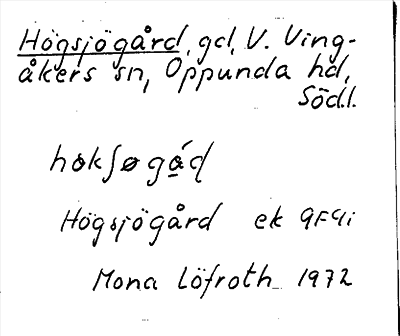 Högsjögård, gd, V. Ving-
åkers sn, Oppunda hd,
Södl.
hɷkʃøgạ́ɖ
Högsjögård ek 9F4i
Mona Löfroth 1972